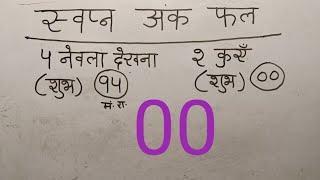 स्वप्न अंक फल
५ नेवला देखना २ कुएँ
(शुभ) १५ (शुभ) ००
मं. रा.
00